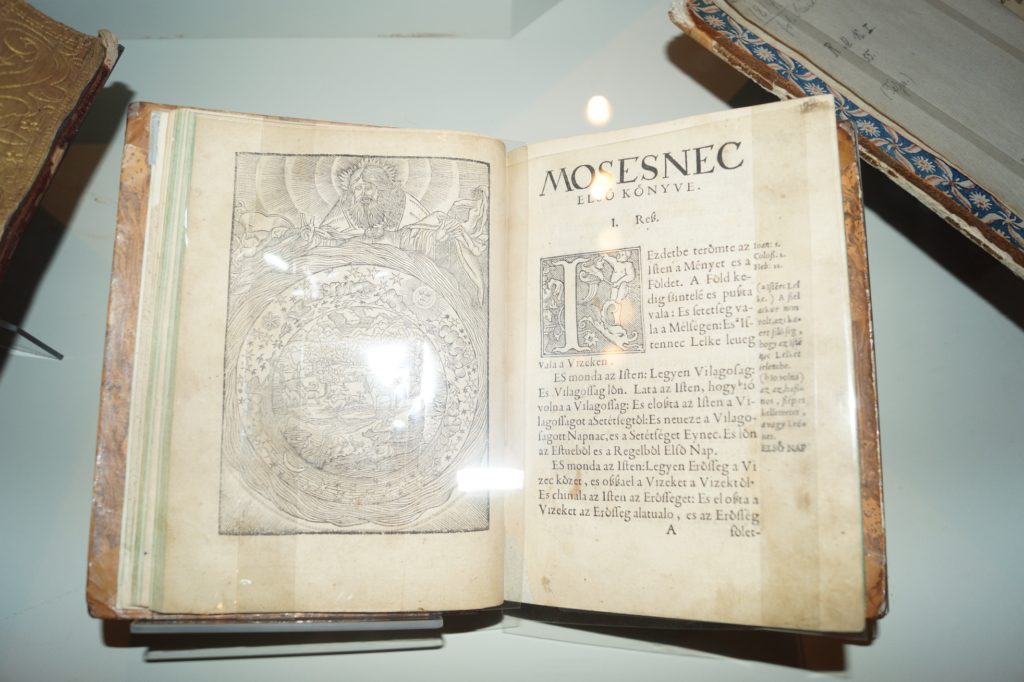 MOSESNEC
ELSŐ KÓNYVE.
I. Reß.
IEzdetbe teròmte az
Iſten a Ményet es a
Földet. A Föld ke-
dig ſuntelé es pußta
vala: Es ſetetſeg va-
la a Mélſegen: Es Iſ-
tennec Lelke leueg
vala a Vizeken.
ES monda az Iſten: Legyen Vilagoſag:
Es Vilagoſſag lòn. Lata az Iſten, hogy ió
volna a Vilagoſſag: Es eloßta az Iſten a Vi-
lagoſſagot a Setétſegtòl: Es neueze a Vilago-
ſagott Napnac, es a Setétſéget Eynec. Es lòn
az Eſtueból es a Regelból Elsò Nap.
ES monda az Iſten: Legyen Eròſſeg a Vi
zec kòzet, es oßßael a Vizeket a Vizektòl.
Es chinala az Iſten az Eròſſeget: Es el oßta a
Vizeket az Eròſſeg alatualo, es az Eròſſeg
A
fòlet-
Ioan: 1.
Coloſſ: 1.
Heb: 11.
ELSÒ NAP